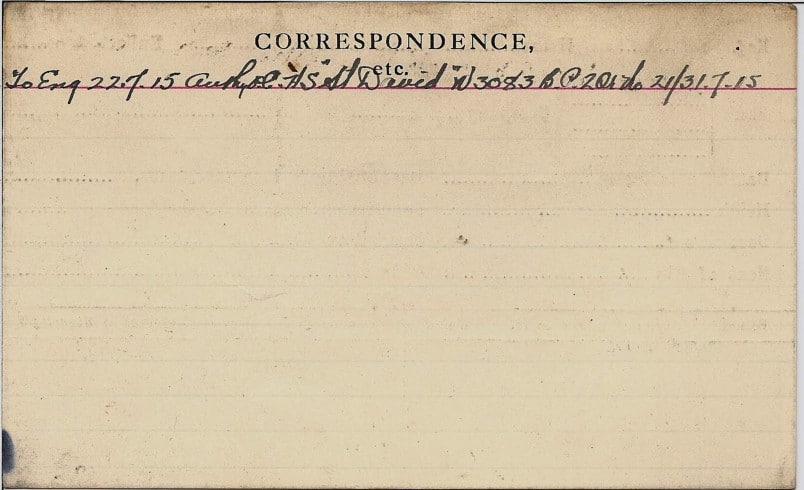 CORRESPONDENCE,
etc.
To Eng 22.7.15 Auth, H.S "St David" W3083 B.C. 21/31.7.15